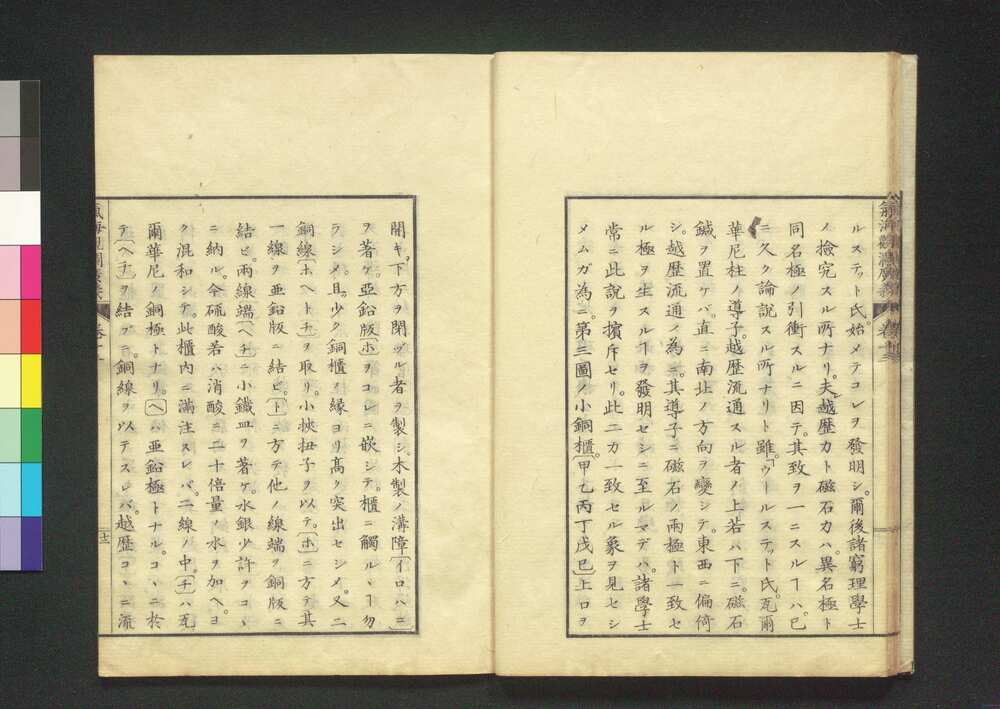 ルステット氏。始メテコレヲ發明シ。爾後諸窮理學士
ノ檢究スル所ナリ。夫越歴力ト磁石力ハ。異名極ト
同名極ノ引衝スルニ因テ。其致ヲ一ニスルヿハ。已
ニ久ク論說スル所ナリト雖。ウールステット氏。瓦爾
華尼柱ノ導子。越歴流通スル者ノ上若ハ下ニ。磁石
鍼ヲ置ケバ。直ニ南北ノ方向ヲ變シテ。東西ニ偏倚
シ。越歴流通ノ為ニ。其導子ニ磁石ノ兩極ト一致セ
ル極ヲ生スルヿヲ發明セシニ至ルマデハ。諸學士
常ニ此說ヲ擯斥セリ。此二力一致セル象ヲ見セシ
メムガ為ニ。第三圖ノ小銅櫃。〔甲乙丙丁戊巳〕上口ヲ
開キ。下方ヲ閉ヅル者ヲ製シ。木製ノ溝障〔イロハニ〕
ヲ著ケ。亞鉛版〔ホ〕ヲコレニ嵌シテ。櫃ニ觸ルヽヿ勿
ラシメ。且少ク銅櫃ノ縁ヨリ高ク突出セシメ。又二
銅線〔ホヘトチ〕ヲ取リ。小挾扭子ヲ以テ。〔ホ〕ニ方テ其
一線ヲ亞鉛版ニ結ビ。〔ト〕ニ方テ他ノ線端ヲ銅版ニ
結ビ。兩線端〔ヘチ〕ニ小鐵皿ヲ著ケ。水銀少許ヲコヽ
ニ納ル。今硫酸若ハ消酸ニ二十倍量ノ水ヲ加ヘ。ヨ
ク混和シテ。此櫃内ニ滿注スレバ。二線ノ中。〔チ〕ハ瓦
爾華尼ノ銅極トナリ。〔ヘ〕ハ亞鉛極トナル。コヽニ於
テ〔ヘチ〕ヲ結ブニ。銅線ヲ以テスレバ。越歴コヽニ流